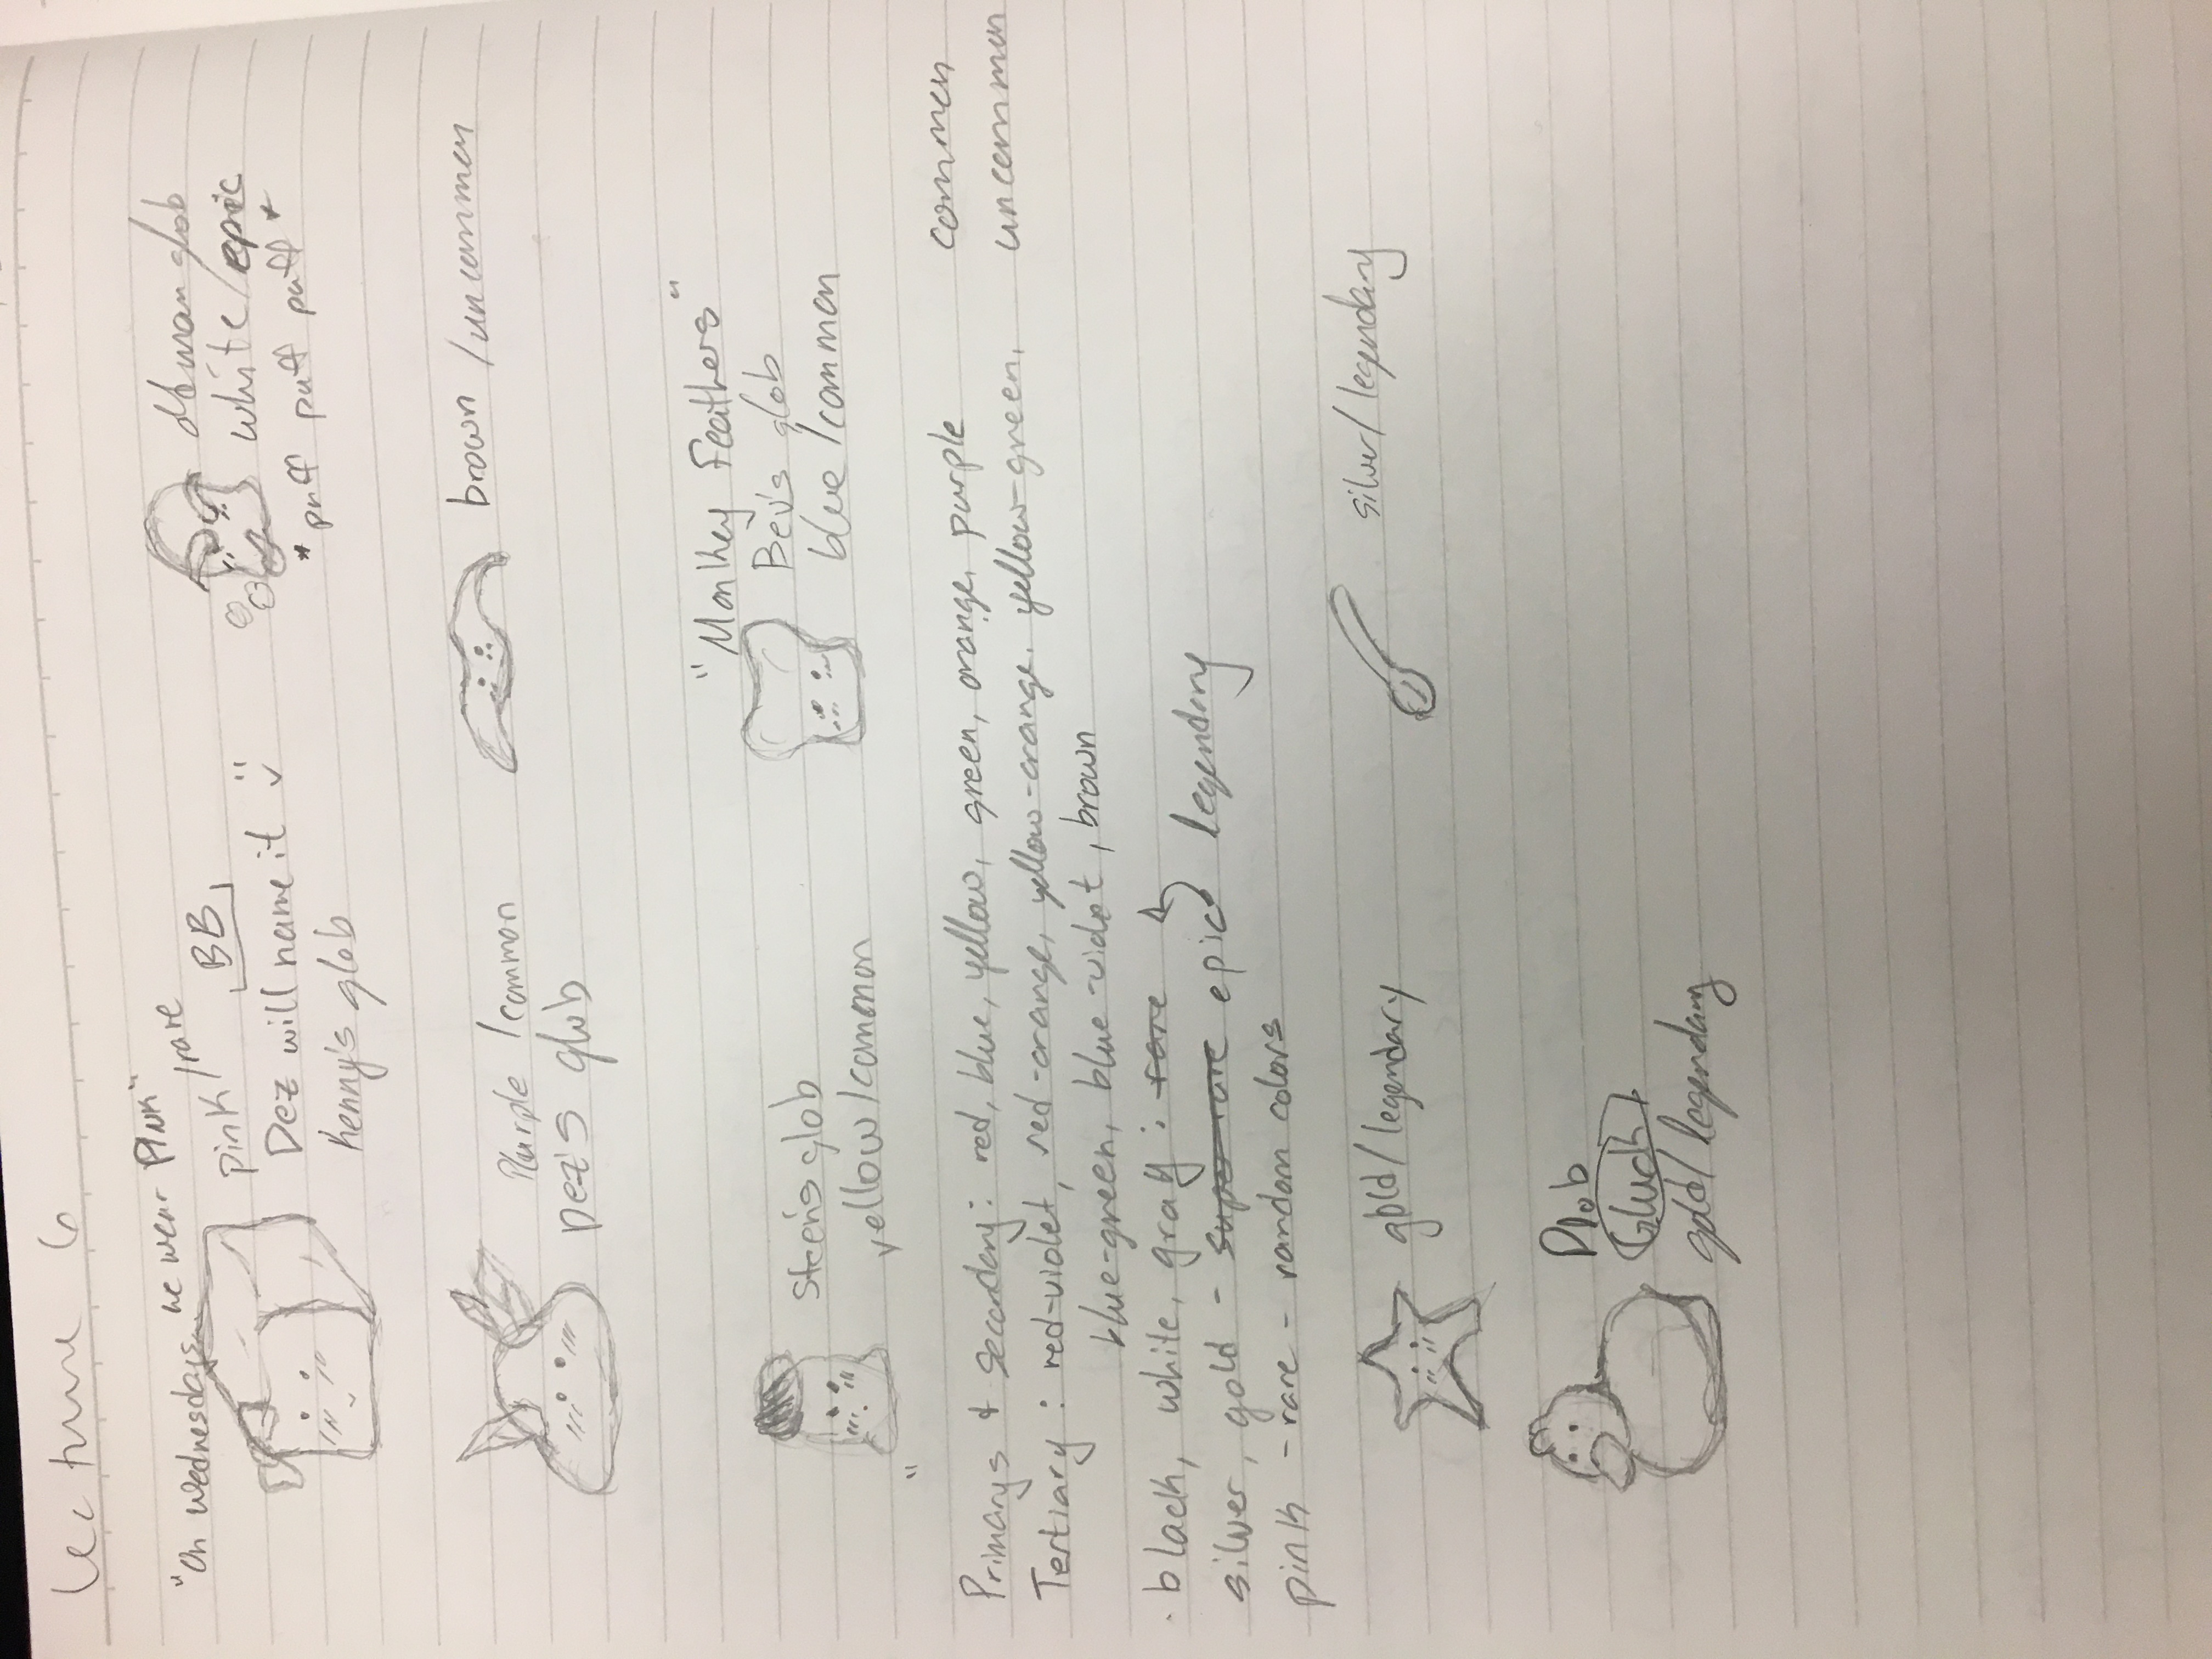 Lecture 6
"On Wednesdays we wear PINK"
pink/rare
BB
Dez will name it
Kenny's glob
old man glob
white/epic
*puff puff puff*
Purple/common
Dez's glob
brown/uncommon
Steen's glob
yellow/common
"Monkey Feathers"
Bev's glob
blue/common
"
Primarys & Secondary: red, blue, yellow, green, orange, purple common
Tertiary: red-violet, red-orange, yellow-orange. yellow-green, uncommon
blue-green, blue-violet, brown
black, white, gray: rare
silver, gold - super rare epic legendary
pink - rare - random colors
gold/legendary
silver/legendary
Dlob
Gluck
gold/legendary